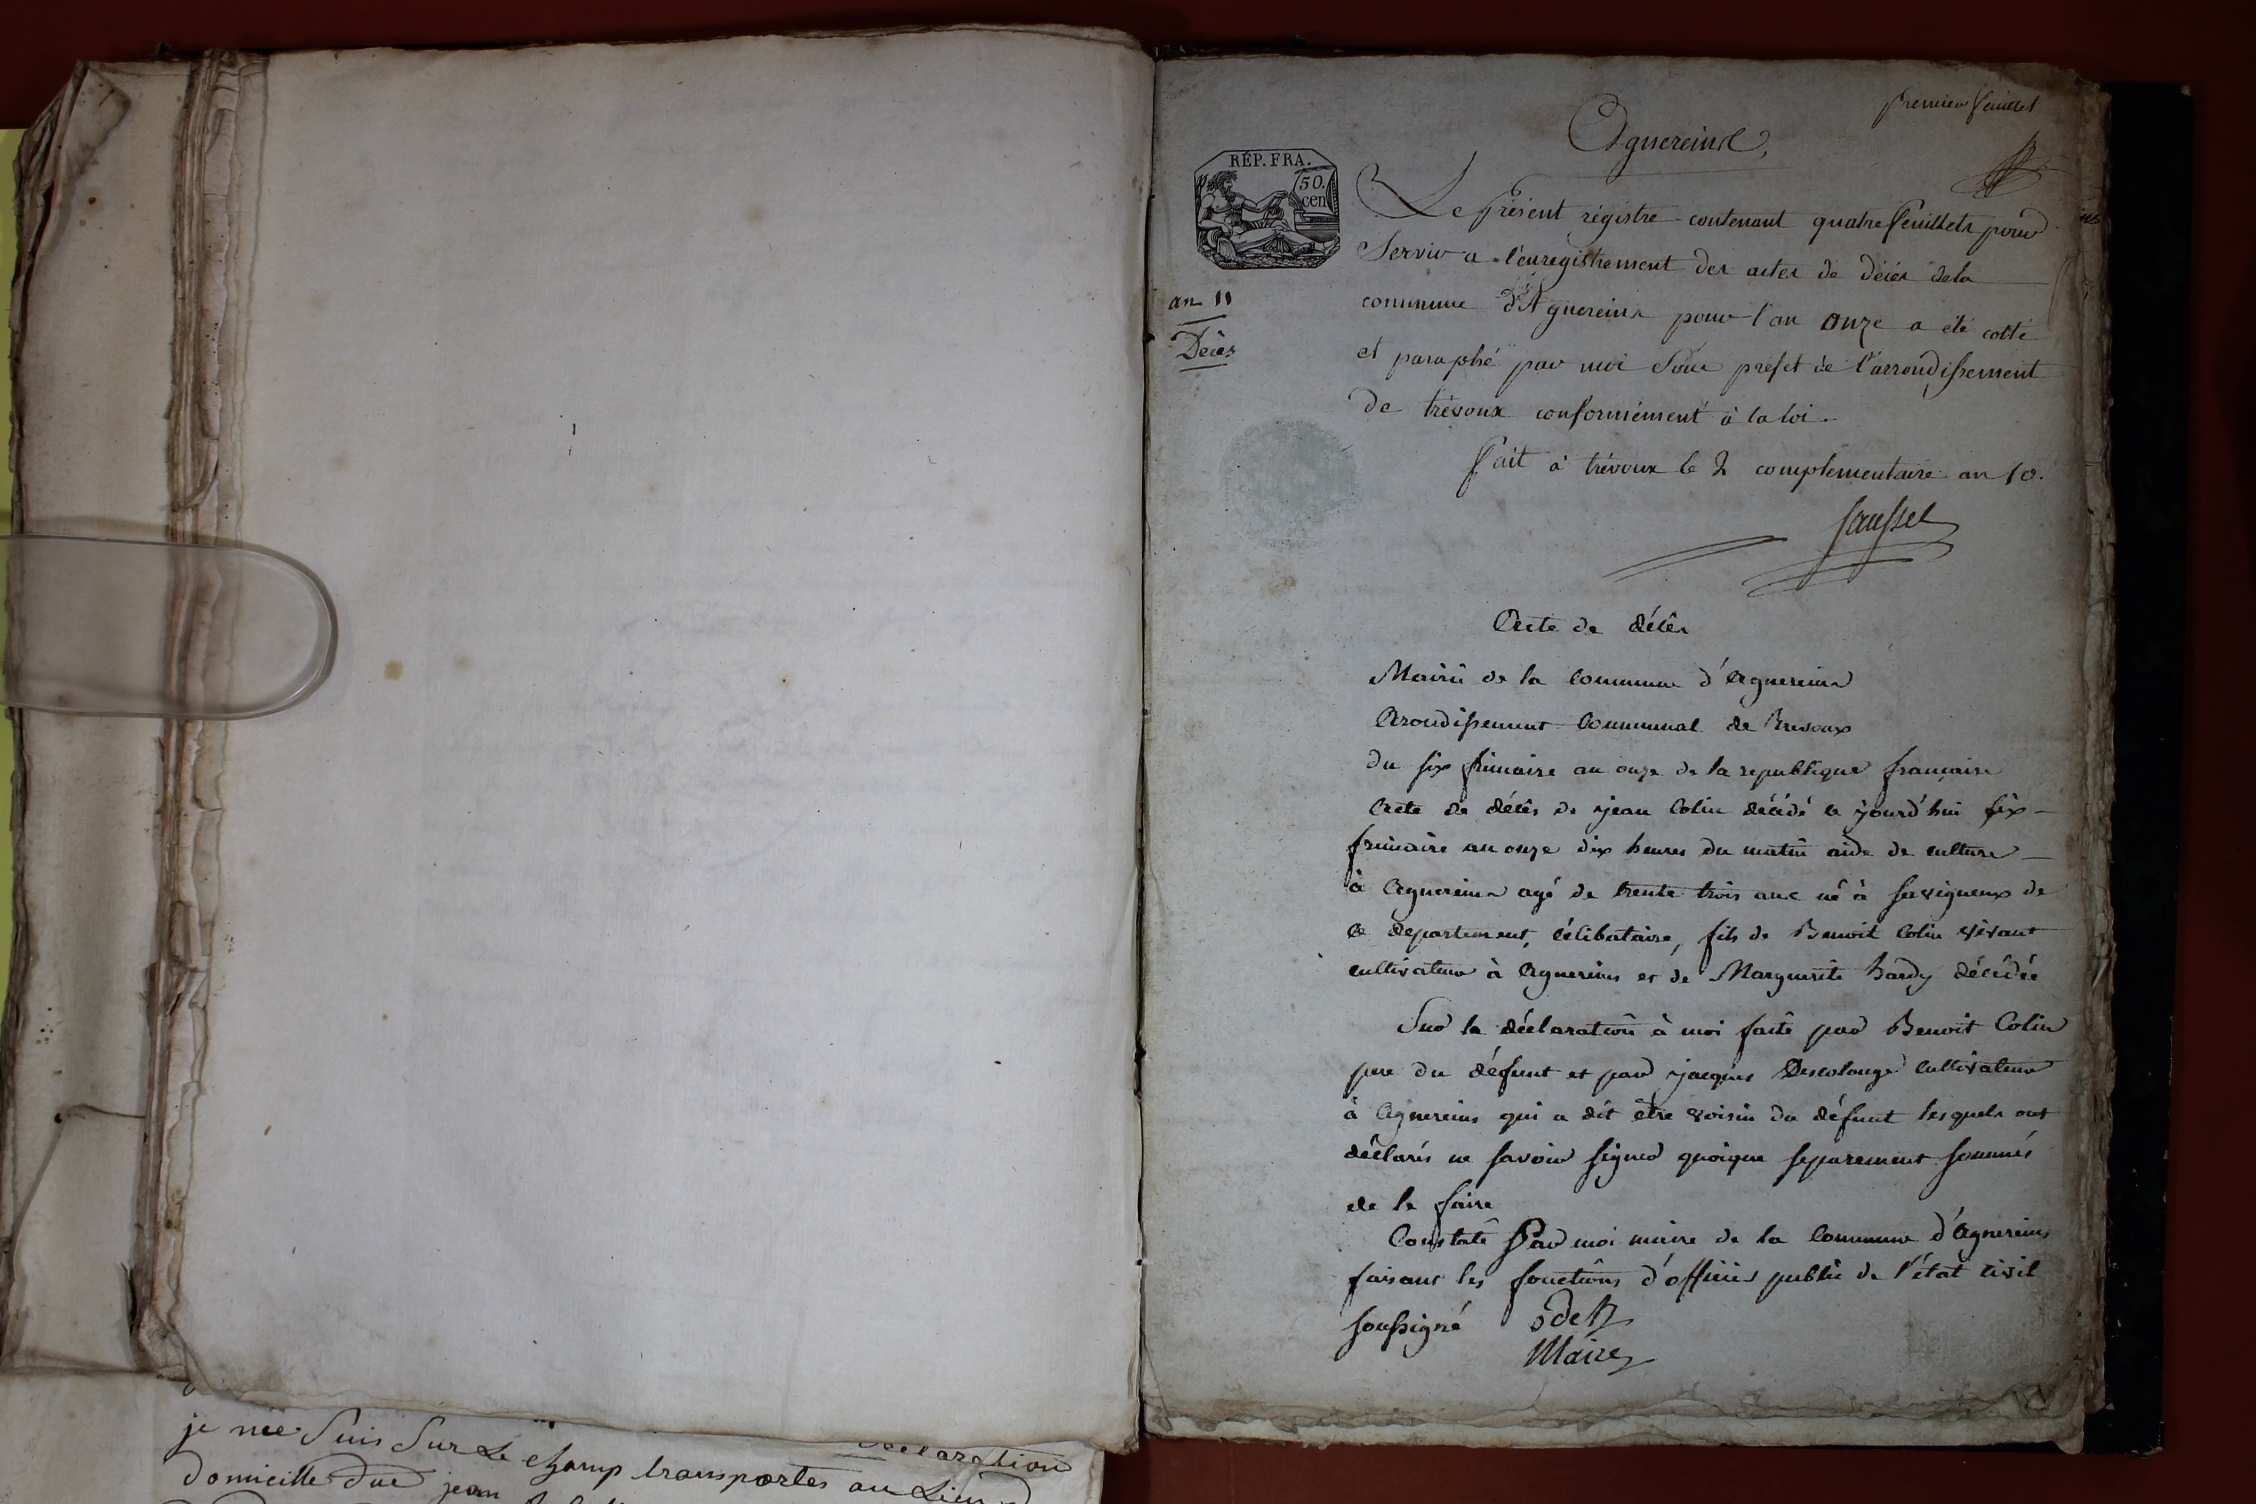 premier feuillet
Agnereins
RÉP. FRA.
50.
cen
Le présent régistre contenant quatre feuillets pour
Servir a l'enregistrement des actes de décès de la
an 11
commune d'Agnereins pour l'an onze a été cotté
Décès
et paraphé par moi Sous prefet de l'arrondissement
de trévoux conformément à la loi.
fait à trévoux le 2 complementaire an 10.
Acte de décès
Mairie de la Commune d'Agnereins
Arondissement Communal de Trevoux
du six frimaire an onze de la republique francaise
Acte de décès de jean Colin décédé ce jourd'hui six
frimaire an onze dix heures du matin aide de culture
à Agnereins agé de trente trois ans né à Savigneux de
ce departement, célibataire, fils de Benoit Colin vivant
cultivateur à Agnereins et de Marguerite hardy décédée
Sur la déclaration à moi faite par Benoit Colin
pere du défunt et par jacques Descolonge Cultivateur
à Agnereins qui a dit être voisin du défunt lesquels ont
déclarés ne savoir signer quoique separement sommés
de le faire
Constaté Par moi maire de la Commune d'Agnereins
faisant les fonctions d'officier public de l'état civil
soussigné
Maire
declaration
je me Suis Sur Le champ transportes au Lieu
domicille due jean